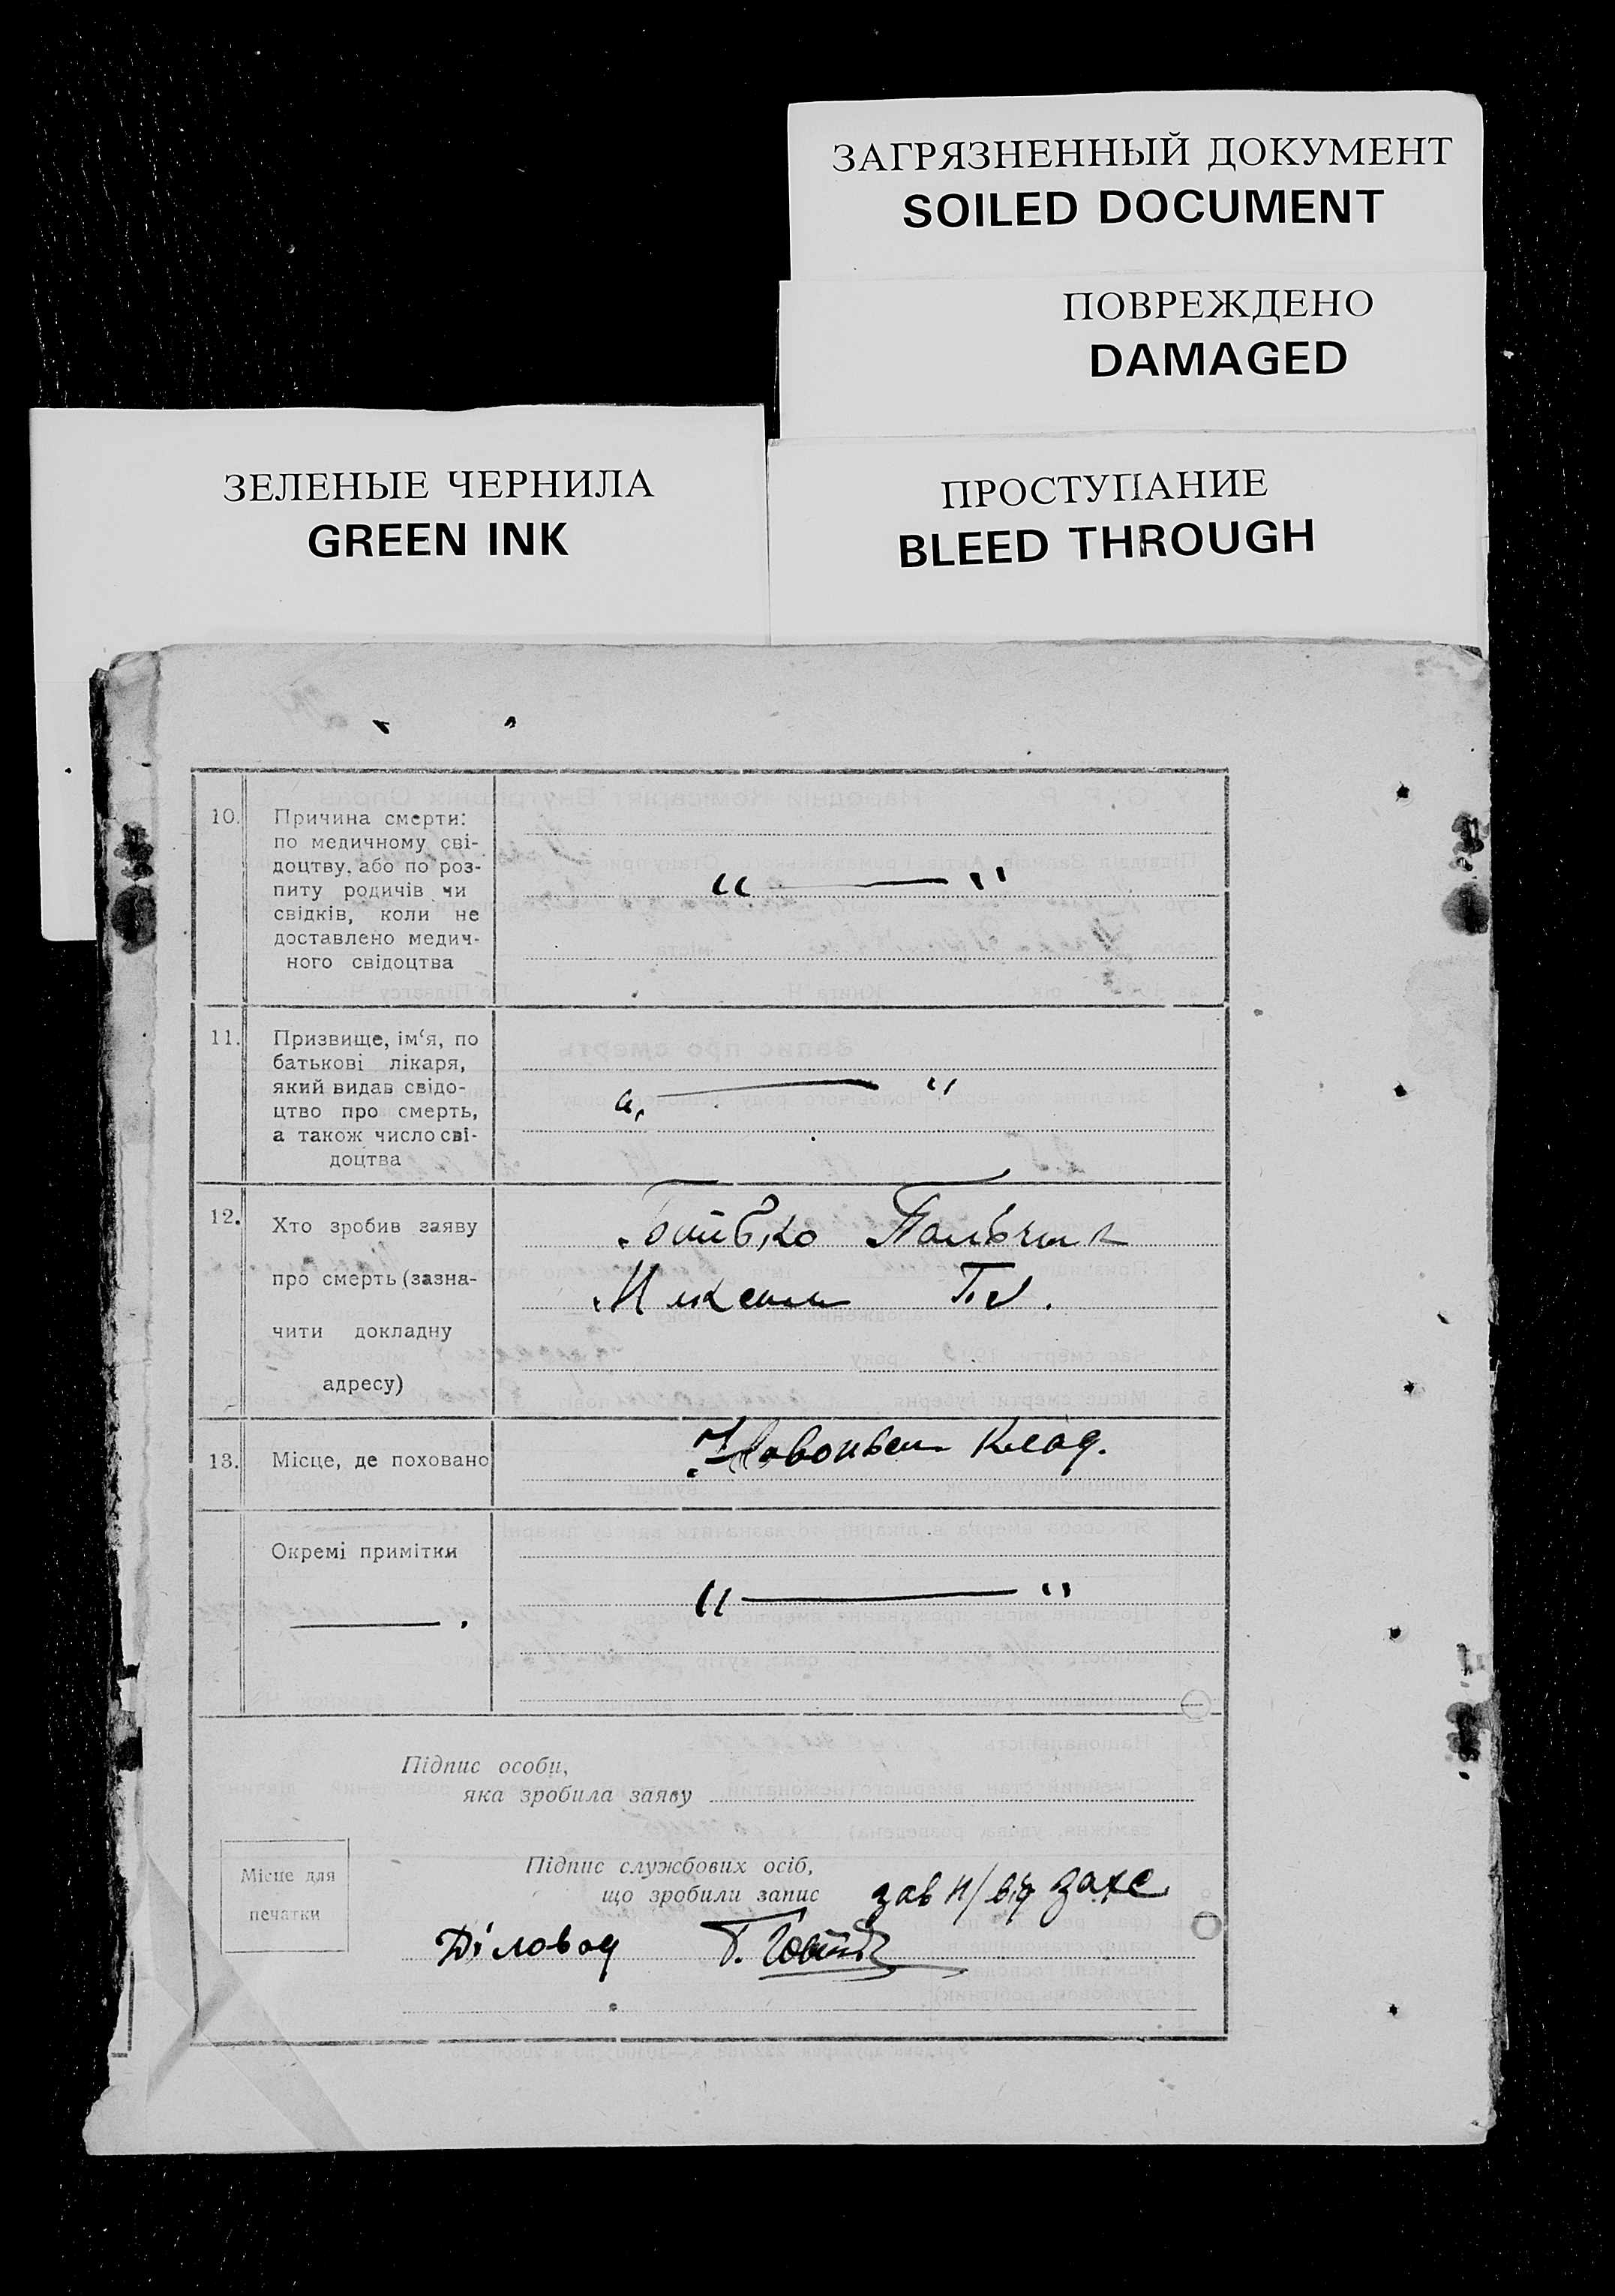 ЗАГРЯЗНЕННЫЙ ДОКУМЕНТ
SOILED DOCUMENT
ПОВРЕЖДЕНО
DAMAGED
ЗЕЛЕНЫЕ ЧЕРНИЛА
GREEN INK
ПРОСТУПАНИЕ
BLEED THROUGH
10. Причина смерти:
по медичному сві-
доцтву, або по роз-
питу родичів чи
свідків, коли не
доставлено медич-
ного свідоцтва
" — "
11. Призвище, ім‘я, по
батькові лікаря,
який видав свідо-
цтво про смерть,
а також число сві-
доцтва
" — "
12. Хто зробив заяву
про смерть (зазна-
чити докладну
адресу)
Батько
13. Місце, де поховано
Клад.
Окремі примітки
" — "
Підпис особи,
яка зробила заяву
Місце для
печатки
Підпис службових осіб,
що зробили запис
зав п/від загс
Діловод